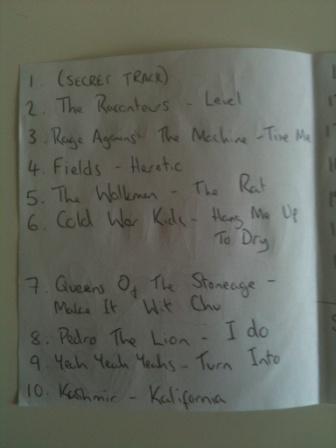 1. (SECRET TRACK)
2. The Raconteurs - Level
3. Rage Against The Machine - Tire Me
4. Fields - Heretic
5. The Walkmen - The Rat
6. Cold War Kids - Hang Me Up
To Dry
7. Queens Of The Stoneage -
Make It Wit Chu
8. Pedro The Lion - I do
9. Yeah Yeah Yeahs - Turn Into
10. Kashmir - Kalifornia